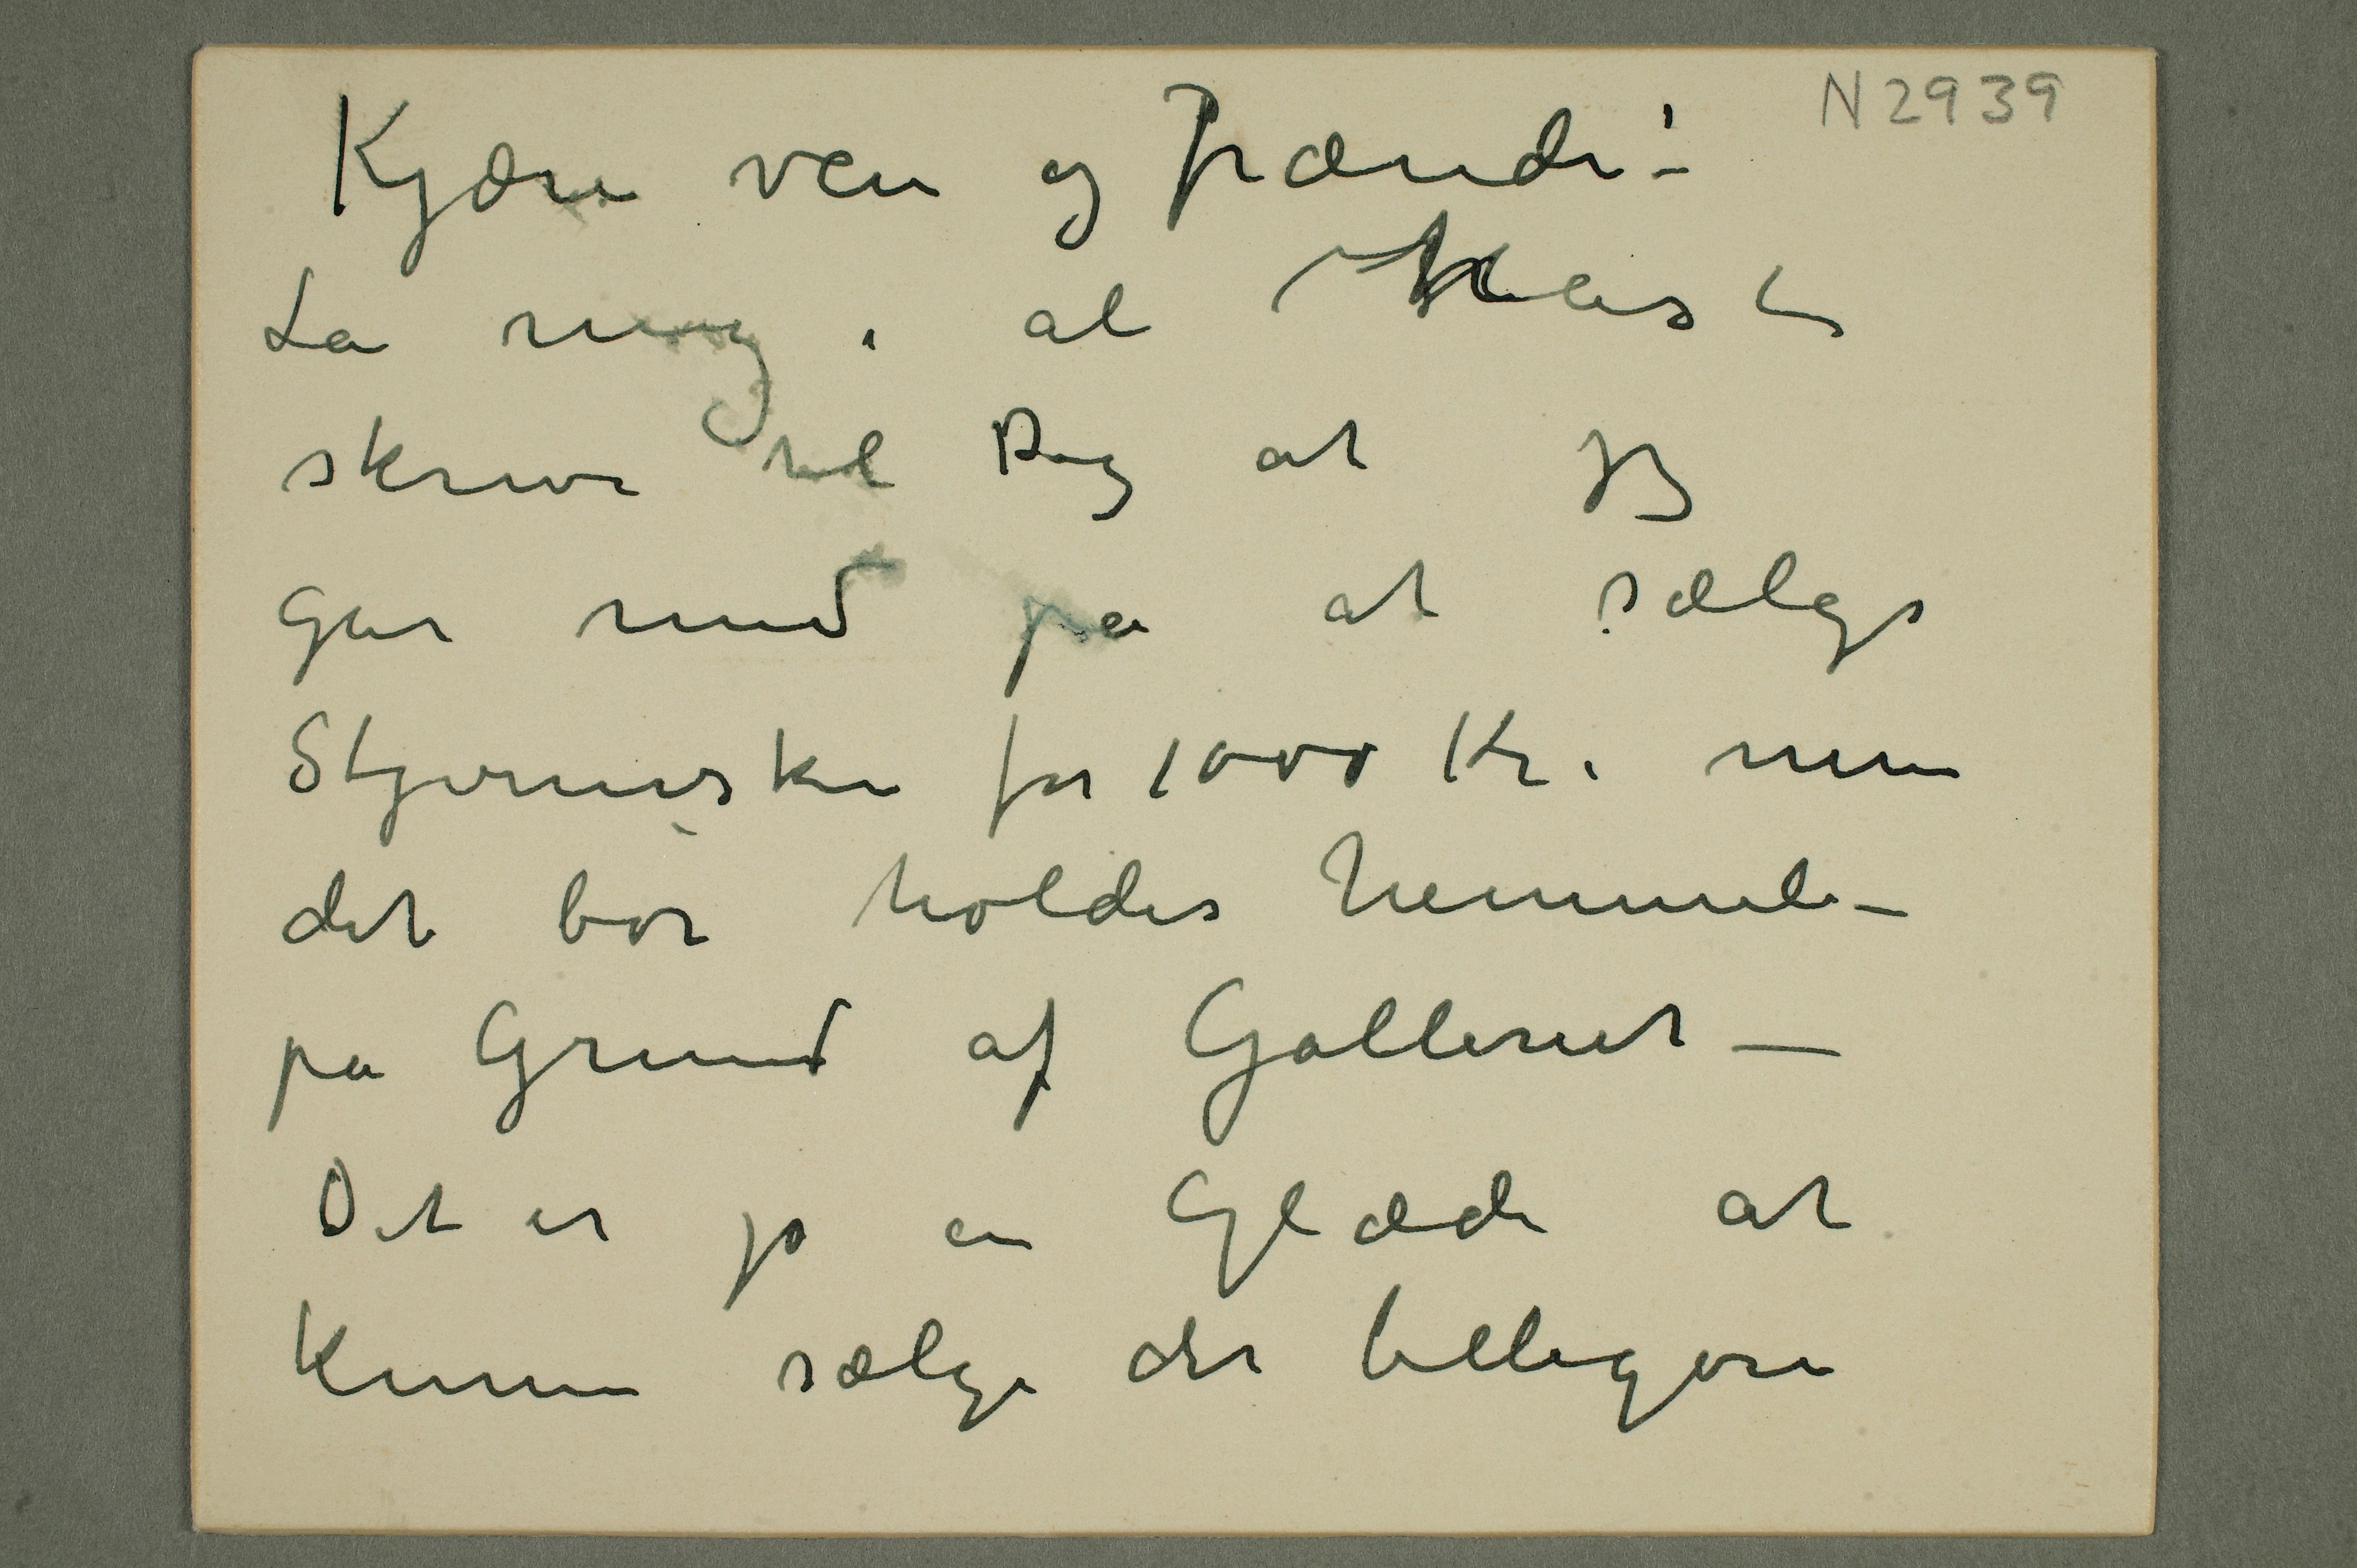 N 2939
Kjære ven og Frænde!
La mig i al Hast
skrive til Dig at jeg
går med på at sælge
for 1000 Kr. men
det bør holdes hemmeli–
på Grund af Galleriet –
Det er jo en Glæde at
kunne sælge det billigere